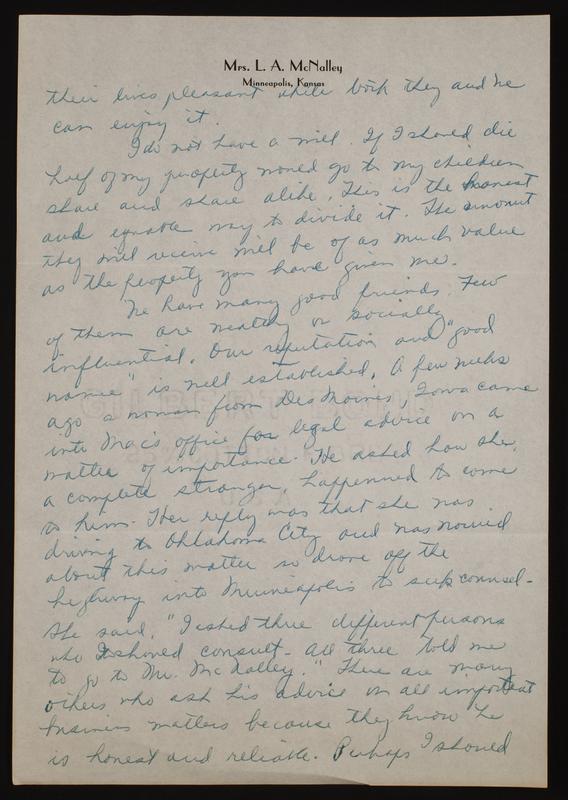 Mrs. L. A. McNalley
Minneapolis, Kansas
their lives pleasant while both they and we
can enjoy it.
I do not have a will. If I should die
half of my property would go to my children
share and share alike. This is the honest
and equable way to divide it. The amount
they will receive will be of as much value
as the property you have given me.
We have many good friends. Few
of them are wealthy or socially
influential. Our reputation and "good
name" is well established. A few weeks
ago a woman from Des Moines, Iowa came
into Mac's office for legal advice on a
matter of importance. He asked how she,
a complete stranger, happenned to come
to him. Her reply was that she was
driving to Oklahoma City and was worried
about this matter so drove off the
highway into Minneapolis to seek counsel-
She said, "I asked three different persons
who I should consult - all three told me
to go to Mr. McNalley." There are many
others who ask his advice on all important
business matters because they know he
is honest and reliable. Perhaps I should